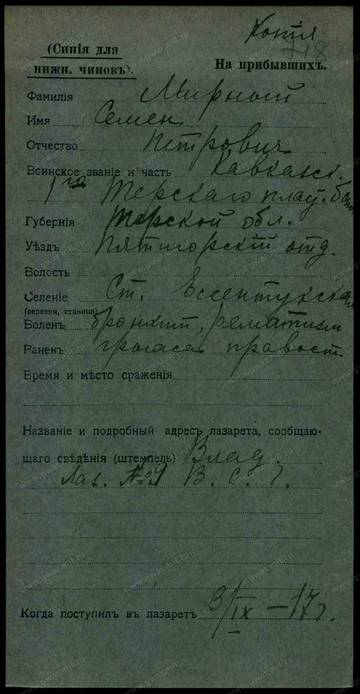 Копія
718
(Синія для
нижн. чиновъ).
На прибывшихъ.
Фамилія Мирный
Имя Семен
Отчество Петрович
Воинское званіе и часть Кавказс.
1го Терскаго плас. бат
Губернія Терской обл.
Уѣздъ Пятигорскій отд.
Волость
Селеніе Ст. Ессентукская
(деревня, станица)
Боленъ бронхит, рематизм
Раненъ
Время и мѣсто сраженія
Названіе и подробный адресъ лазарета, сообщаю-
щаго свѣдѣнія (штемпель) Влад.
Лаз. №1 В. С. Г.
Когда поступилъ въ лазаретъ 3/IX – 17 г.